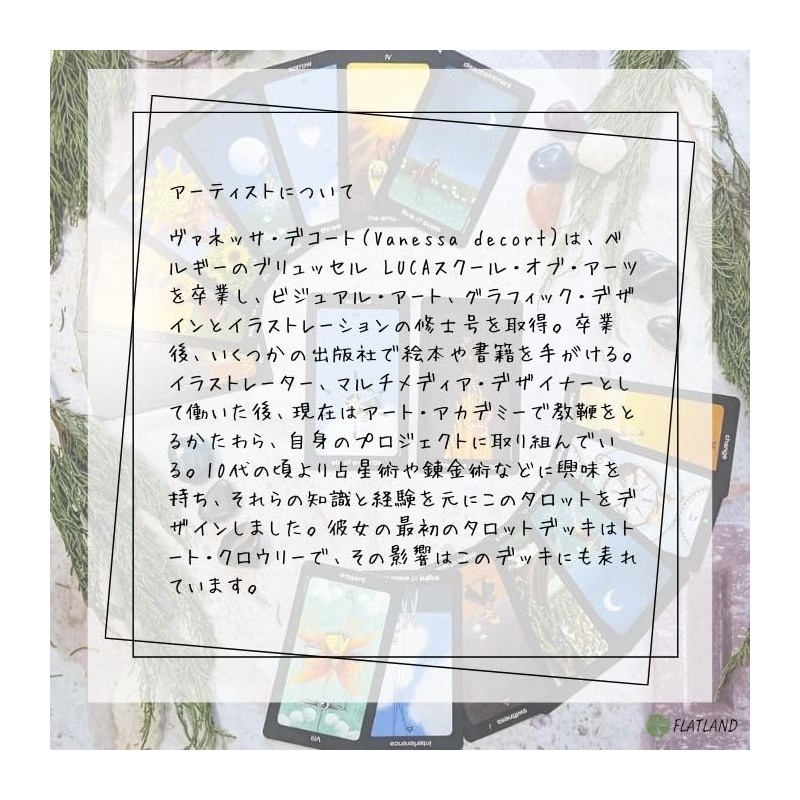 アーティストについて
ヴァネッサ・デコート(Vanessa decort)は、ベ
ルギーのブリュッセル LUCAスクール・オブ・アーツ
を卒業し、ビジュアル・アート、グラフィック・デザ
インとイラストレーションの修士号を取得。卒業
後、いくつかの出版社で絵本や書籍を手がける。
イラストレーター、マルチメディア・デザイナーとし
て働いた後、現在はアート・アカデミーで教鞭をと
るかたわら、自身のプロジェクトに取り組んでい
る。10代の頃より占星術や錬金術などに興味を
持ち、それらの知識と経験を元にこのタロットをデ
ザインしました。彼女の最初のタロットデッキはト
ート・クロウリーで、その影響はこのデッキにも表れ
ています。
sorrow
IV
disappointment
five of cups
three
change
justice
VIII
interference
swiftness
FLATLAND